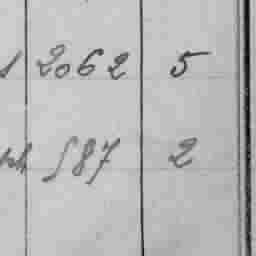 2062 5
587 2